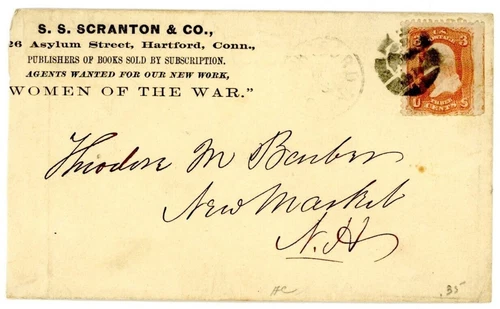 S. S. SCRANTON & CO.,
26 Asylum Street, Hartford, Conn.,
PUBLISHERS OF BOOKS SOLD BY SUBSCRIPTION.
AGENTS WANTED FOR OUR NEW WORK,
WOMEN OF THE WAR."
U.S. POSTAGE
3 3
THREE CENTS
U S
Theodore M Barber
New Market
N.H
AC
.35